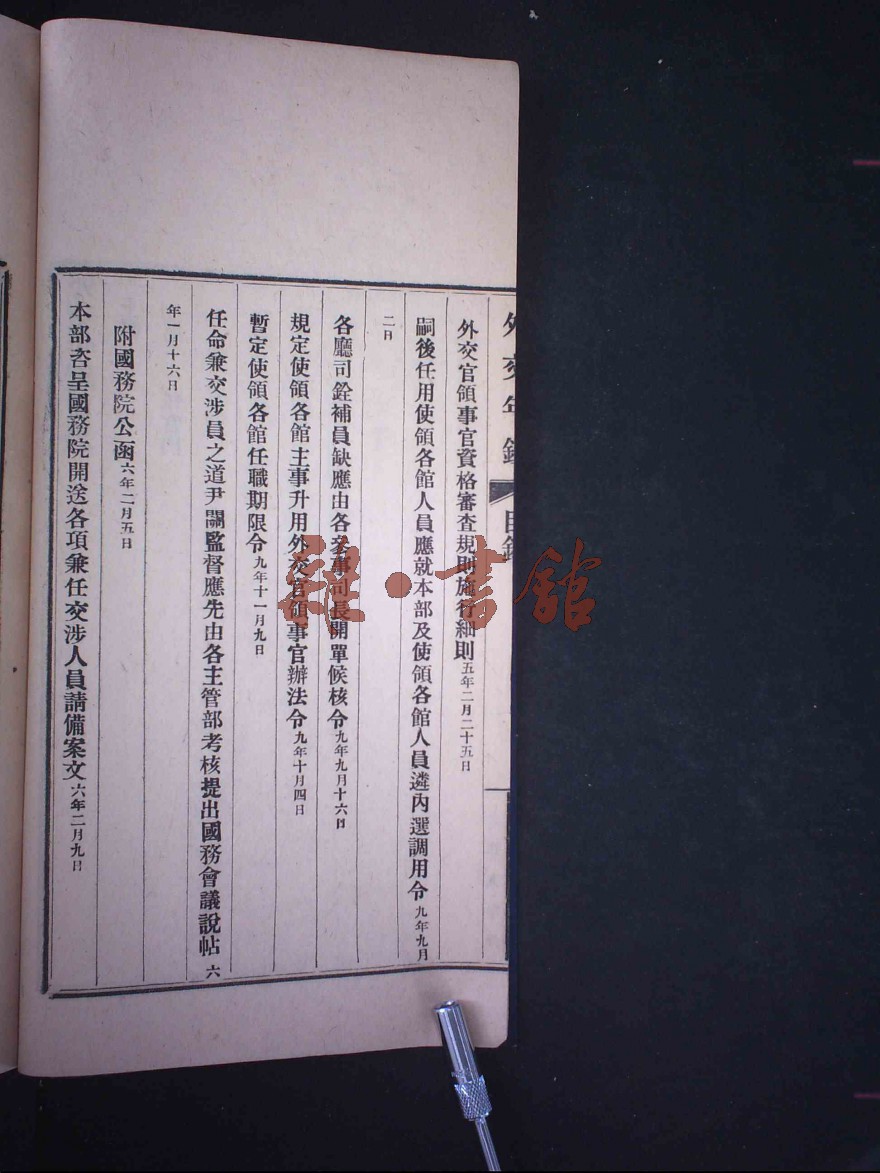 外交年錄 目錄
外交官領事官資格審查規則施行細則五年二月二十五日
嗣後任用使領各館人員應就本部及使領各館人員遴內選調用令九年九月
二日
各廳司銓補員缺應由各參事司長開單候核令九年九月十六日
規定使領各館主事升用外交官領事官辦法令九年十月四日
暫定使領各館任職期限令九年十一月九日
任命兼交涉員之道尹關監督應先由各主管部考核提出國務會議說帖六
年一月十六日
附國務院公函六年二月五日
本部咨呈國務院開送各項兼任交涉人員請備案文六年二月九日
書館